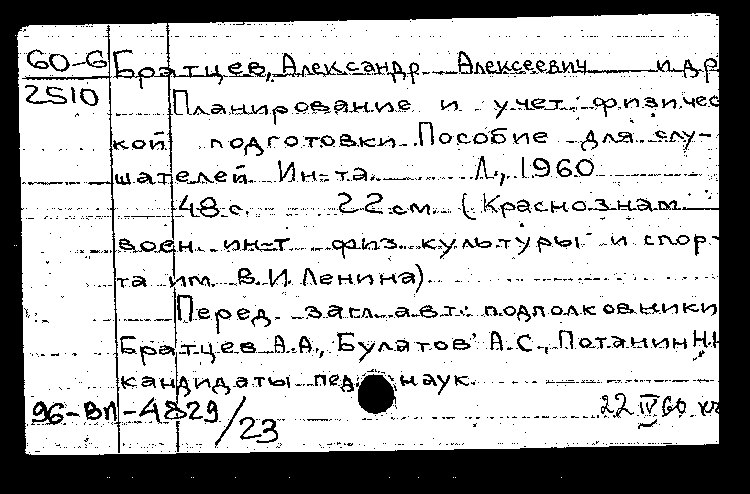 60-6 Братцев, Александр Алексеевич и др
2510 Планирование и учет физичес
кой подготовки Пособие для слу-
шателей Ин-та. Л., 1960
48 с. 22 см (Краснознам.
воен. ин-т физ. культуры и спор-
та им. В.И. Ленина)
Перед загл. авт.: подполковники
Братцев А.А., Булатов А.С., Потанин Н.
кандидаты пед. наук.
96-ВП-4829/23 22 IV 60